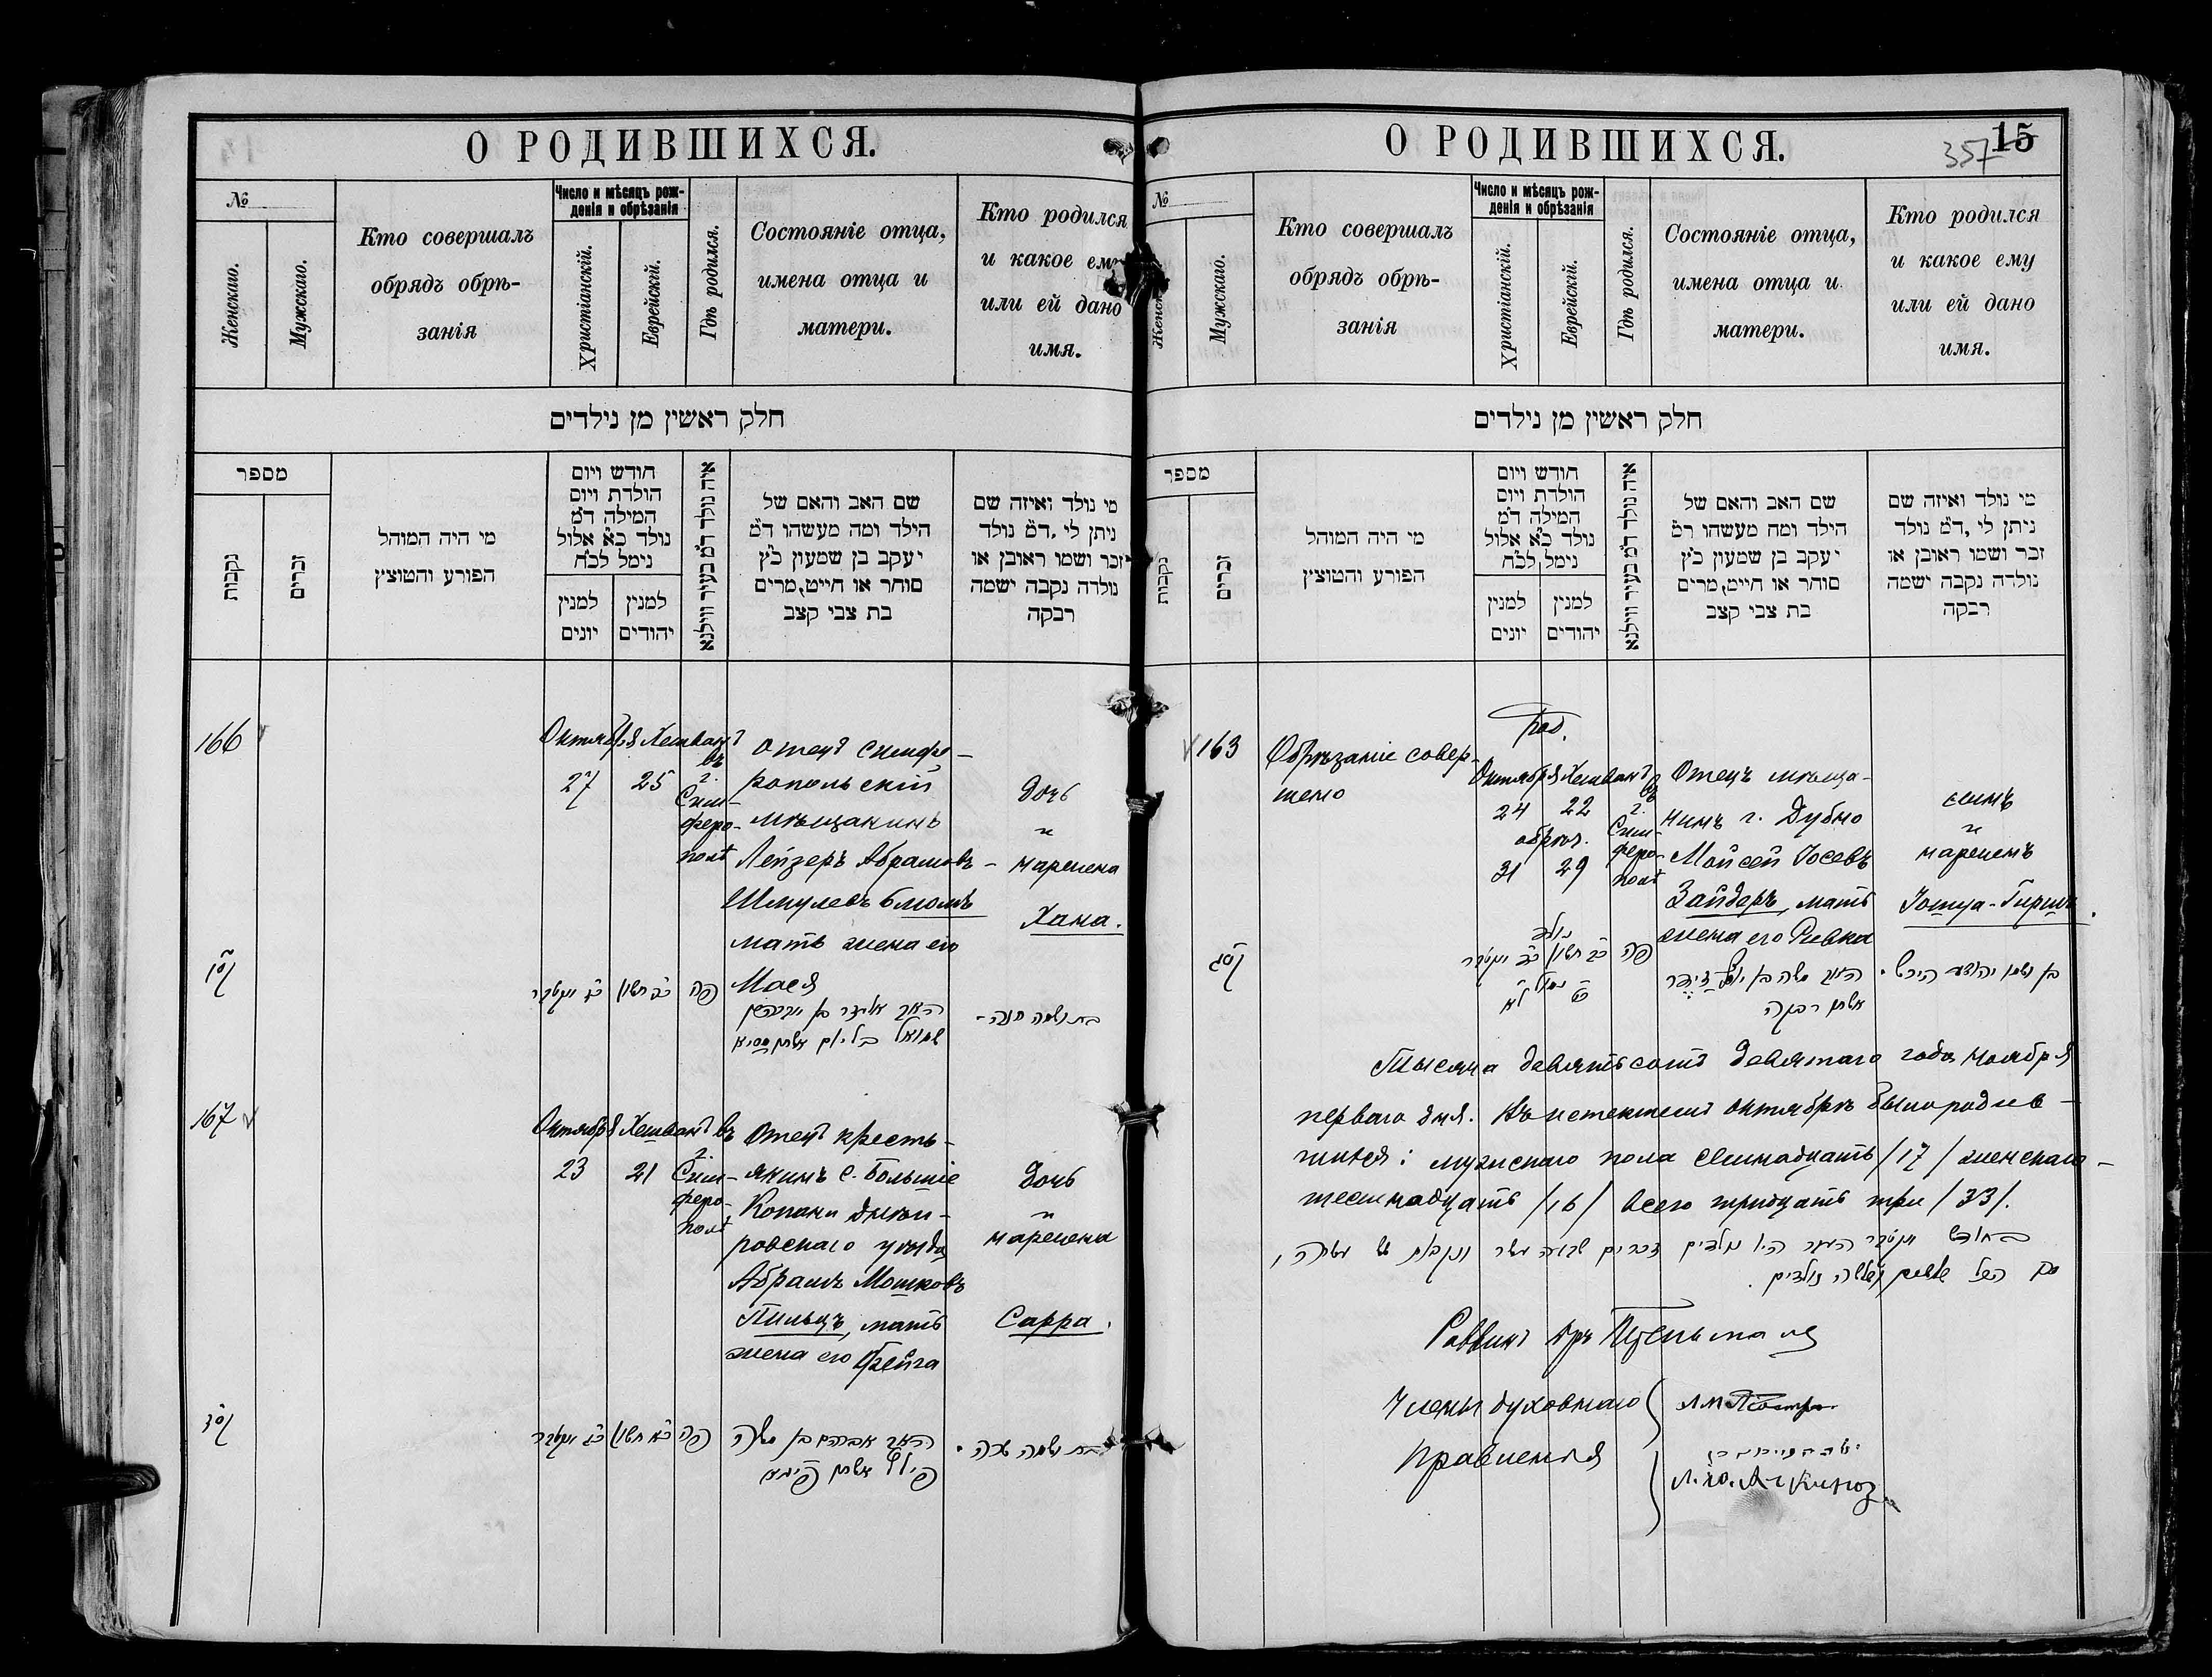 О РОДИВШИХСЯ.
№
Женскаго.
Мужскаго.
Кто совершалъ
обрядъ обрѣ-
занія
Число и мѣсяцъ рож-
денія и обрѣзанія
Христіанскій.
Еврейскій.
Гдѣ родился.
Состояніе отца,
имена отца и
матери.
Кто родился
и какое ему
или ей дано
имя.
חלק ראשין מן נילדים
מספר
נקבות
זכרים
מי היה המוהל
הפורע והטוצץ
חודש ויום
הולדת ויום
המילה ד״מ
נולד כ״א אלול
נימל לכ״ח
למנין
יונים
למנין
יהודים
איה נולד ד״מ בעיר ווילנא
שם האב והאם של
הילד ומה מעשהו ד״מ
יעקב בן שמעון כ״ץ
סוחר או חייט, מרים
בת צבי קצב
מי נולד ואיזה שם
ניתן לי, ד״מ נולד
זכר ושמו ראובן או
נולדה נקבה ישמה
רבקה
166
Октября Хешванъ
27 25
въ
г.
Сим-
феро-
полѣ
отецъ симфе-
ропольскій
мѣщанинъ
Лейзеръ Абрамовъ-
Шмулевъ Блюмъ
мать жена его
Мася
Дочь
и
наречена
Хана.
פה
בת ושמה חנה
167
Октября Хешванъ
23 21
въ
г.
Сим-
феро-
полѣ
Отецъ кресть-
янинъ с. Большіе
Копани Днѣп-
ровскаго уѣзда
Абрамъ Мошковъ
Пильцъ, мать
жена его Фейга
Дочь
и
наречена
Сарра.
פה
האב אברהם בן משה
פילץ אשתו פייגא
בת ושמה שרה
О РОДИВШИХСЯ.
357
15
№
Женск
Мужскаго.
Кто совершалъ
обрядъ обрѣ-
занія
Число и мѣсяцъ рож-
денія и обрѣзанія
Христіанскій.
Еврейскій.
Гдѣ родился.
Состояніе отца,
имена отца и
матери.
Кто родился
и какое ему
или ей дано
имя.
חלק ראשין מן נילדים
מספר
נקבות
זכרים
מי היה המוהל
הפורע והטוצץ
חודש ויום
הולדת ויום
המילה ד״מ
נולד כ״א אלול
נימל לכ״ח
למנין
יונים
למנין
יהודים
איה נולד ד״מ בעיר ווילנא
שם האב והאם של
הילד ומה מעשהו ד״מ
יעקב בן שמעון כ״ץ
סוחר או חייט, מרים
בת צבי קצב
מי נולד ואיזה שם
ניתן לי, ד״מ נולד
זכר ושמו ראובן או
נולדה נקבה ישמה
רבקה
163
Обрѣзаніе совер-
шено
Род.
Октября Хешванъ
24 22
обрѣз.
31 29
въ
г.
Сим-
феро-
полѣ
Отецъ мѣща-
нинъ г. Дубно
Мойсей Іосевъ
Зайдеръ, мать
жена его Ривка
сынъ
и
нареченъ
Іошуа-Гиршъ.
קסג
פה
אשתו רבקה
בן ושמו יהושע הירש
Тысяча девятьсотъ девятаго года ноября
перваго дня. Въ истекшемъ октябрѣ было родив-
шихся: мужскаго пола семнадцать /17/ женскаго-
шестнадцать /16/ всего тридцать три /33/.
Раввинъ
Члены духовнаго
правленія